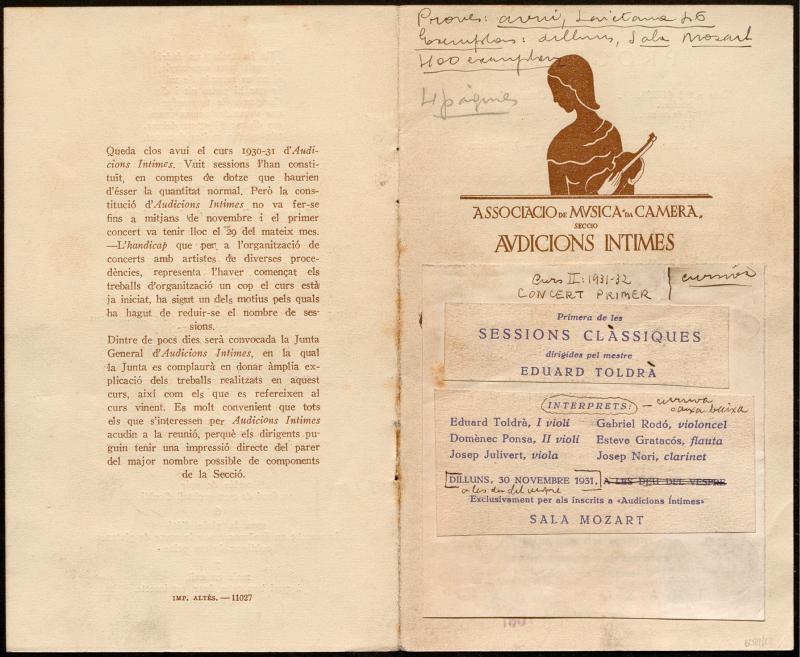 Queda clos avui el curs 1930-31 d'Audi-
cions Intimes. Vuit sessions l'han consti-
tuït, en comptes de dotze que haurien
d'ésser la quantitat normal. Però la cons-
titució d'Audicions Intimes no va fer-se
fins a mitjans de novembre i el primer
concert va tenir lloc el 29 del mateix mes.
—L'handicap que per a l'organització de
concerts amb artistes de diverses proce-
dències, representa l'haver començat els
treballs d'organització un cop el curs està
ja iniciat, ha sigut un dels motius pels quals
ha hagut de reduir-se el nombre de ses-
sions.
Dintre de pocs dies serà convocada la Junta
General d'Audicions Intimes, en la qual
la Junta es complaurà en donar àmplia ex-
plicació dels treballs realitzats en aquest
curs, així com els que es refereixen al
curs vinent. Es molt convenient que tots
els que s'interessen per Audicions Intimes
acudin a la reunió, perquè els dirigents pu-
guin tenir una impressió directe del parer
del major nombre possible de components
de la Secció.
IMP. ALTÉS. — 11027
Proves: avui, Laietana 46
Exemplars: dilluns, Sala Mozart
400 exemplars
4 pàgines
ASSOCIACIO DE MVSICA DA CAMERA
SECCIO
AVDICIONS INTIMES
Curs II: 1931-32
CONCERT PRIMER
cursiva
Primera de les
SESSIONS CLÀSSIQUES
dirigides pel mestre
EDUARD TOLDRÀ
INTERPRETS: — cursiva
caixa baixa
Eduard Toldrà, I violí Gabriel Rodó, violoncel
Domènec Ponsa, II violí Esteve Gratacós, flauta
Josep Julivert, viola Josep Nori, clarinet
DILLUNS, 30 NOVEMBRE 1931, A LES DEU DEL VESPRE
a les deu del vespre
Exclusivament per als inscrits a «Audicions Íntimes»
SALA MOZART